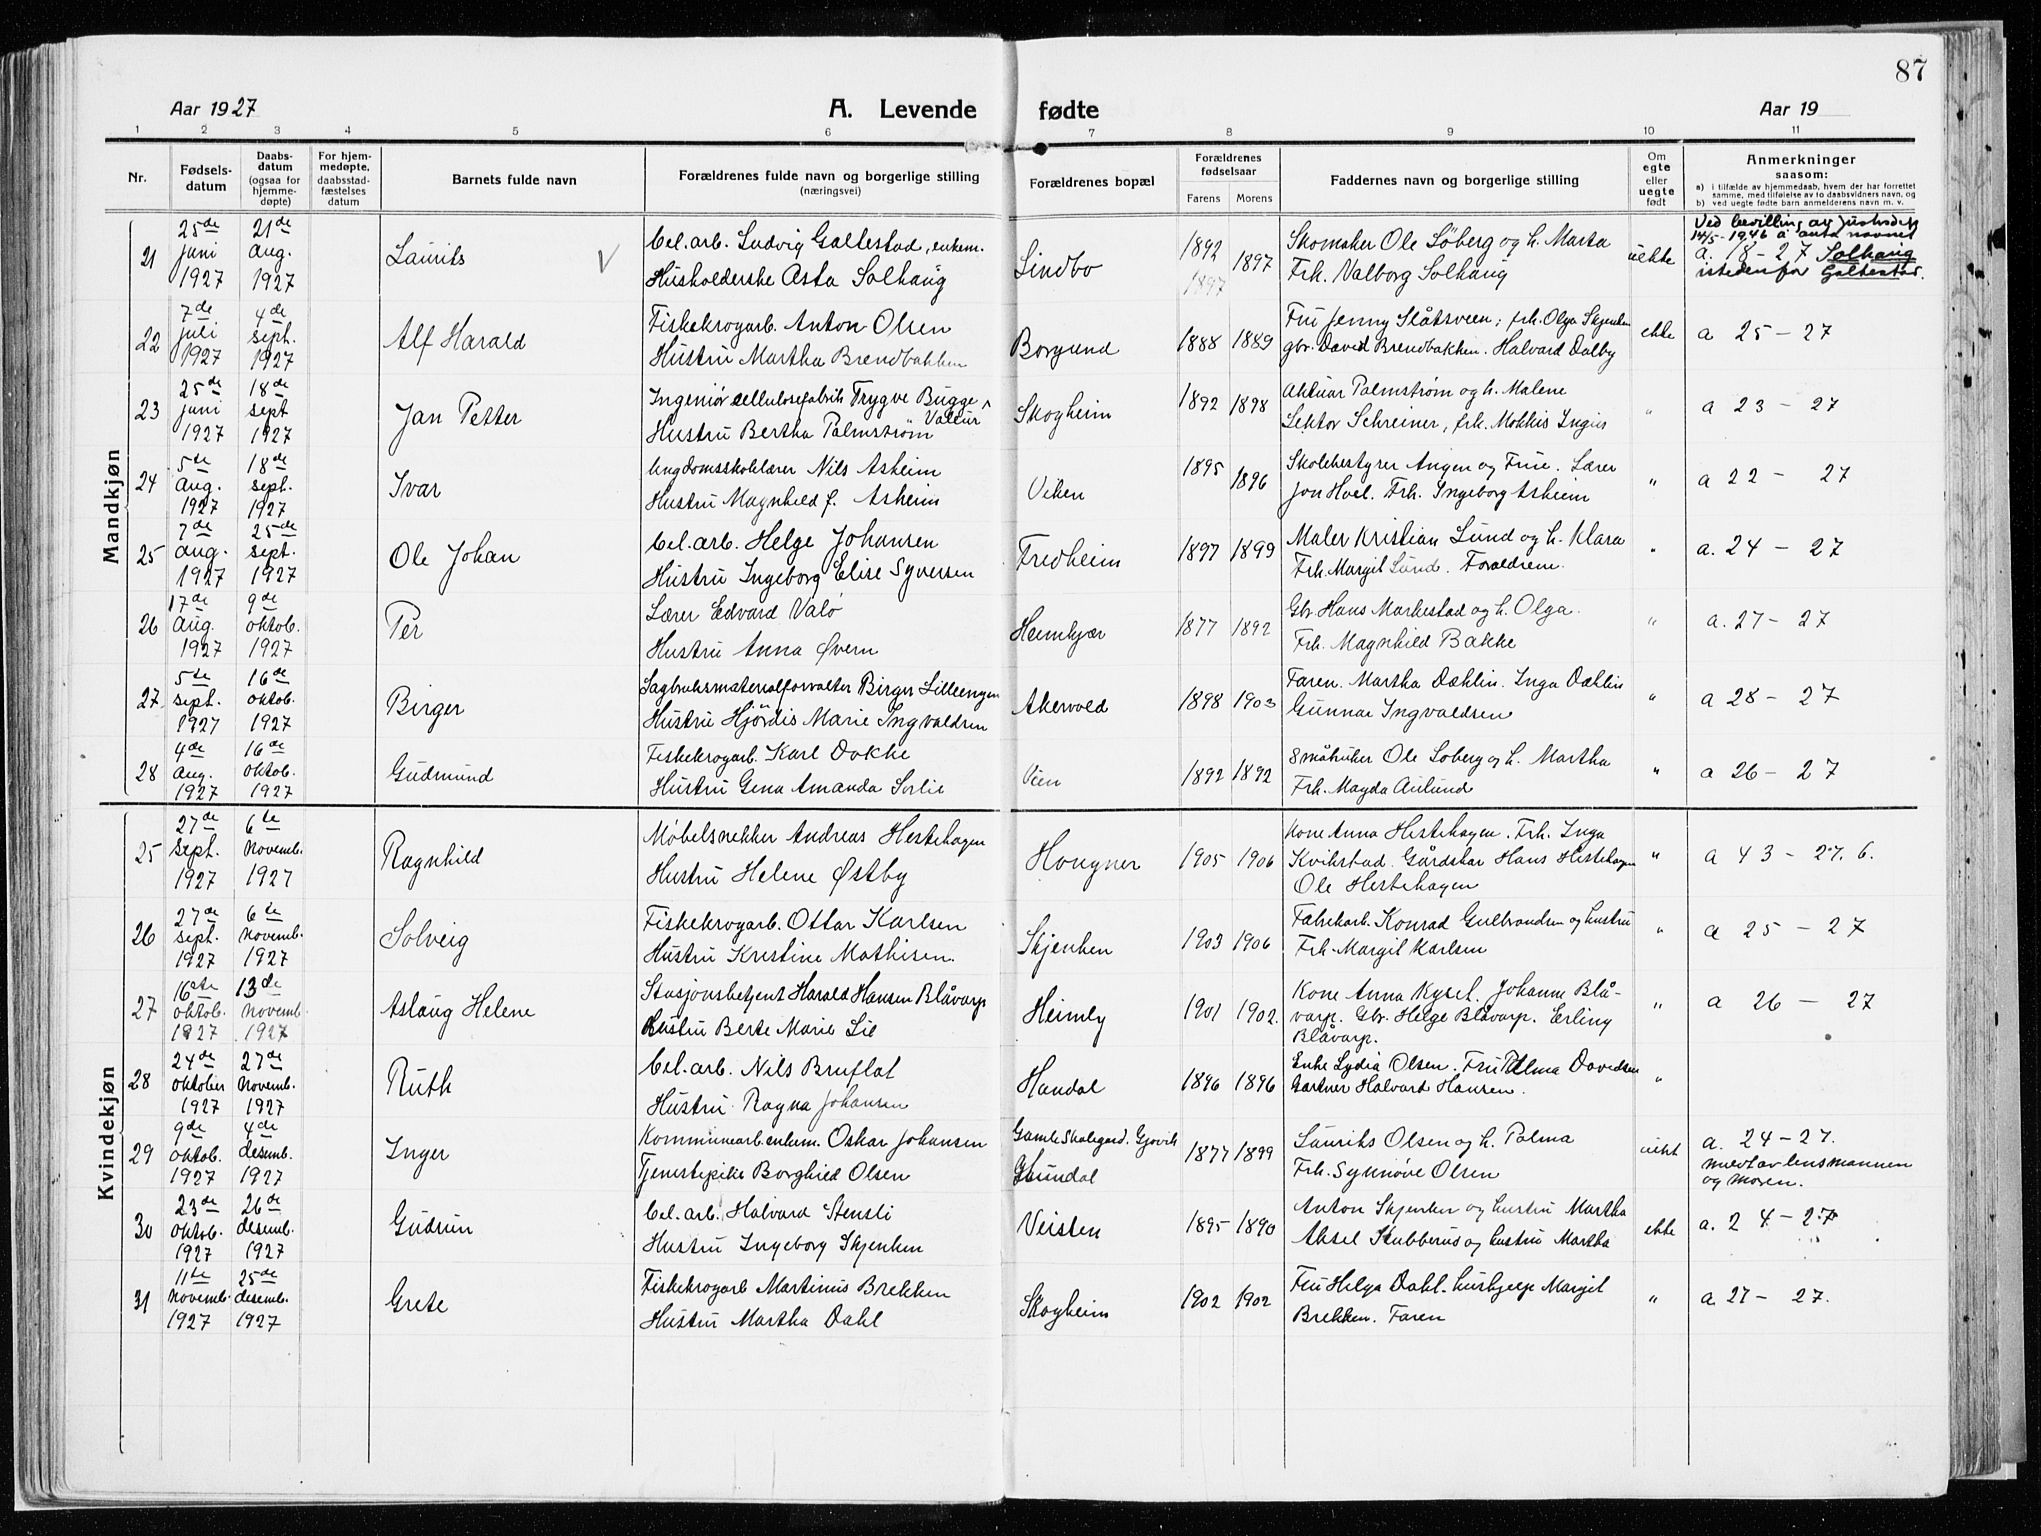 87
Aar 1927
A. Levende fødte
Aar 19
1 2 3 4 5 6 7 8 9 10 11
Nr.
Fødsels-
datum
Daabs-
datum
(ogsaa for
hjemme-
døpte)
For hjem-
medøpte,
daabsstad-
fæstelses
datum
Barnets fulde navn
Forældrenes fulde navn og borgerlige stilling
(næringsvei)
Forældrenes bopæl
Forældrenes
fødselsaar
Farens Morens
Faddernes navn og borgerlige stilling
Om
egte
eller
uegte
født
Anmerkninger
saasom:
a) i tilfælde av hjemmedaab, hvem der har forrettet
samme, med tilføielse av to daabsvidners navn, og
b) ved uegte fødte barn anmelderens navn m. v.
Mandkjøn
21 25de juni 1927 21de aug. 1927 Laurits V
Cel.arb. Ludvig Galtestad, enkem.
Husholderske Asta Solhaug
Lindbo 1892 1897 1897
Skomaker Ole Søberg og h. Marta
Frk. Valborg Solhaug
uekte
Ved bevilling av Justisdep.
14/5-1946 å anta navnet
a. 18-27 Solhaug
istedenfor Galtestad.
22 7de juli 1927 4de sept. 1927 Alf Harald
Fiskekrogarb. Anton Olsen
Hustru Martha Brendbakken
Borgund 1888 1889
Fru Jenny Slåtsveen; frk. Olga Skjenken
gbr. David Brendbakken. Halvard Dalby
ekte a 25-27
23 25de juni 1927 18de sept 1927 Jan Petter
Ingeniør cellulosefabrik Trygve Bugge
Valeur
Hustru Bertha Palmstrøm
Skogheim 1892 1898
Aktuar Palmstrøm og h. Malene
Lektor Schreiner, frk. Mokkis Ingier
" a 23-27
24 5te aug. 1927 18de sept. 1927 Ivar
Ungdomsskolelærer Nils Asheim
Hustru Magnhild f. Asheim
Viken 1895 1896
Skolebestyrer Angen og Frue. Lærer
Jon Hoel. Frk. Ingeborg Asheim
" a 22-27
25 7de aug. 1927 25de sept. 1927 Ole Johan
Cel.arb. Helge Johansen
Hustru Ingeborg Elise Syversen
Fredheim 1897 1899
Maler Kristian Lund og h. Klara
Frk. Margit Lund. Foreldrene.
" a. 24-27
26 17de aug. 1927 9de oktob. 1927 Per
Lærer Edvard Valø
Hustru Anna Øvern
Heimkjær 1877 1892
Gbr. Hans Markestad og h. Olga.
Frk. Magnhild Bakke
" a. 27-27
27 5te sept. 1927 16de oktob. 1927 Birger
Sagbruksmaterialforvalter Birger Lilleengen
Hustru Hjördis Marie Ingvaldsen
Akervold 1898 1903
Faren. Martha Dæhlin. Inga Dæhlin
Gunnar Ingvaldsen
" a 28-27
28 4de aug. 1927 16de oktob. 1927 Gudmund
Fiskekrogarb. Karl Dokke
Hustru Gena Amanda Sorlie
Vien 1892 1892
Småbruker Ole Soberg og h. Martha
Frk. Magda Aulund
" a 26-27
Kvindekjøn
25 27de sept. 1927 6te novemb. 1927 Ragnhild
Møbelsnekker Andreas Hestehagen
Hustru Helene Østby
Hougner 1905 1906
Kone Anna Hestehagen. Frk. Inga
Kvikstad. Gårdskar Hans Hestehagen
Ole Hestehagen
" a 43-27. 6.
26 27de sept. 1927 6te novemb. 1927 Solveig
Fiskekrogarb. Ottar Karlsen
Hustru Kristine Mathisen.
Skjenken 1903 1906
Fabrikarb. Konrad Gulbrandsen og hustru
Frk. Margit Karlsen
" a 25-27
27 16de oktob. 1927 13de novemb. 1927 Aslaug Helene
Stasjonsbetjent Harald Hansen Blåvarp
Hustru Berte Marie Lie
Heimly 1901 1902.
Kone Anna Kyset. Johanne Blå-
varp. Gbr. Helge Blåvarp. Erling
Blåvarp.
" a 26-27
28 24de oktober 1927 27de novemb. 1927 Ruth
Cel.arb. Nils Bruflat
Hustru Ragna Johansen
Haudal 1896 1896
Enke Lydia Olsen. Fru Thelma Davidsen
Gartner Halvard Hansen.
"
29 9de oktob. 1927 4de desemb. 1927 Inger
Kommunearb. enkem. Oskar Johansen
Tjenestepike Borghild Olsen
Gamle Skolegard. Gjøvik
Grundal 1877 1899
Laurits Olsen og h. Palma
Frk. Synnøve Olsen
uekt
a. 24-27.
medt av lensmannen
og moren.
30 23de oktob. 1927 26de desemb. 1927 Gudrun
Cel.arb. Halvard Stensli
Hustru Ingeborg Skjenken
Veisten 1895 1890
Anton Skjenken og hustru Martha
Aksel Skubberud og hustru Martha
ekte a. 24-27
31 11te novemb. 1927 25de desemb. 1927 Grete
Fiskekrogarb Martinus Brekken
Hustru Martha Dahl
Skogheim 1902 1902
Fru Helga Dahl. husbjelp Margit
Brekken. Faren
" a. 27-27.